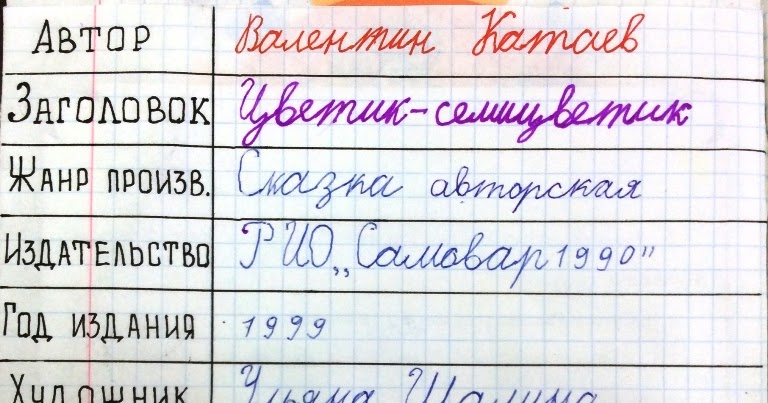 АВТОР Валентин Катаев
ЗАГОЛОВОК Цветик-семицветик
ЖАНР ПРОИЗВ. Сказка авторская
ИЗДАТЕЛЬСТВО РИО „Самовар 1990"
ГОД ИЗДАНИЯ 1999
ХУДОЖНИК Ульяна Шалина